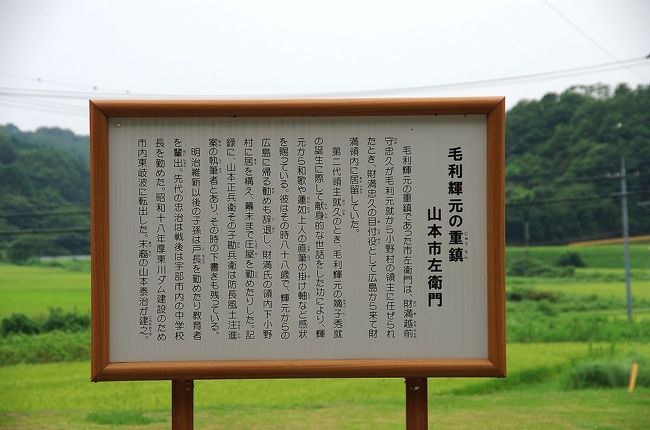 毛利輝元の重鎮
じゅうちん
山本市左衛門
毛利輝元の重鎮であった市左衛門は、財満越前
守忠久が毛利元就から小野村の領主に任ぜられ
たとき、財満忠久の目付役として広島から来て財
満領内に居留していた。
第二代領主就久のとき、毛利輝元の嫡子秀就
の誕生に際して献身的な世話をした功により、輝
元から和歌や蓮如上人の直筆の掛け軸など感状
を賜っている。彼はその時八十八歳で、輝元からの
広島に帰る勧めも辞退し、財満氏の領内下小野
村に居を構え幕末まで庄屋を勤めたりした。記
録に、山本正兵衛その子勘兵衛は防長風土注進
案の執筆者とあり、その時の下書きも残っている。
明治維新以後の子孫は戸長を勤めたり教育者
を輩出。先代の忠治は戦後は宇部市内の中学校
長を勤めた。昭和十八年厚東川ダム建設のため
市内東岐波に転出した。末裔の山本泰治が建之。